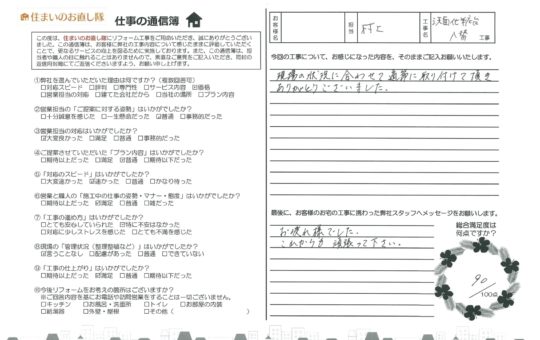 住まいのお直し隊 仕事の通信簿
この度は、住まいのお直し隊でリフォーム工事をご用命いただき、誠にありがとうござい
ました。この通信簿は、お客様に弊社の工事内容について感じたままに評価していただく
ことで、更なるサービスの向上を図るために実施しております。また、この通信簿は、担
当者や職人の目に触れることがありませんので、率直なご意見をご記入いただき、同封の
返信用封筒にてご返信くださいますよう、お願い申し上げます。
①弊社を選んでいただいた理由は何ですか？（複数回答可）
□対応スピード □評判 □専門性 □サービス内容 ☑価格
□営業担当の対応 □建てた会社だから □当社の場所 □プラン内容
②営業担当の「ご提案に対する姿勢」はいかがでしたか？
□十分誠意を感じた □一生懸命だった ☑普通 □事務的だった
③営業担当の対応はいかがでしたか？
☑大変良かった □満足 □普通 □事務的だった
④ご提案させていただいた「プラン内容」はいかがでしたか？
□期待以上だった □満足 ☑普通 □期待以下だった
⑤「対応のスピード」はいかがでしたか？
□大変速かった ☑速かった □普通 □かなり待った
⑥営業と職人の「施工中の仕事の姿勢・マナー・態度」はいかがでしたか？
□期待以上だった ☑満足 □普通 □雑だった
⑦「工事の進め方」はいかがでしたか？
□とても安心していられた ☑特に不安はなかった
□対応に少しストレスを感じた □とても不満を感じた
⑧現場の「管理状況（整理整頓など）」はいかがでしたか？
☑言うことなし □配慮があった □普通 □できていない
⑨「工事の仕上がり」はいかがでしたか？
□期待以上だった ☑満足 □普通 □期待以下だった
⑩今後リフォームをお考えの箇所はございますか？
※ご回答内容を基にお電話や訪問営業をすることは一切ございません。
□キッチン □お風呂・洗面所 □トイレ □お部屋の内装
□給湯器 □外壁・屋根 □その他（ ）
お客様名 担当 村上 工事名 洗面化粧台
入替 工事
今回の工事について、お感じになった内容を、そのままご記入お願いいたします。
現場の状況に合わせて適菊に取り付けて頂き
ありがとうございました。
最後に、お客様のお宅の工事に携わった弊社スタッフへメッセージをお願いします。
お疲れ様でした。
これからも 頑張って下さい。
総合満足度は
何点ですか？
90
/100点